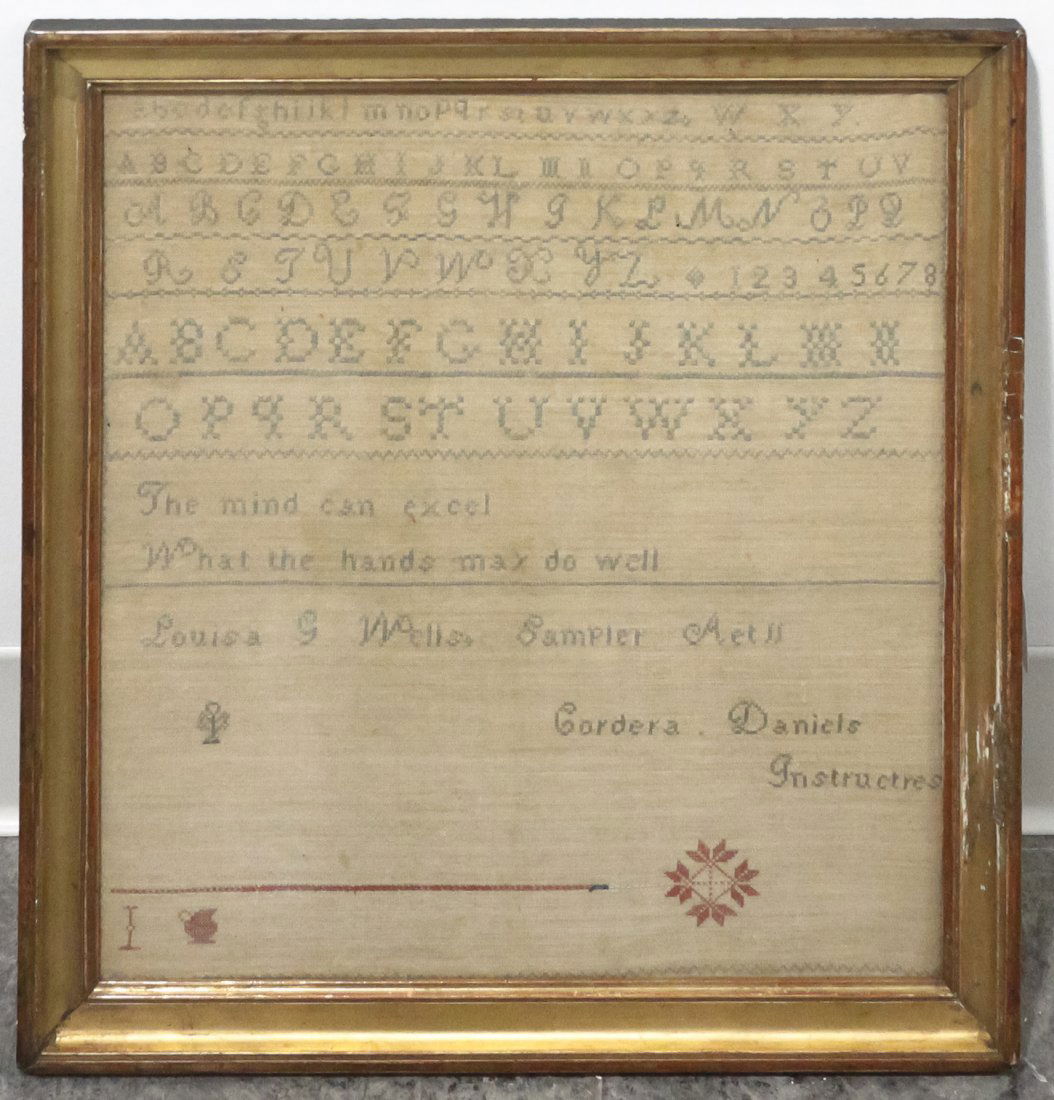 abcdefghijklmnopqrstuvwxz, W X Y
ABCDEFGHIJKLMNOPqRSTUV
ABCDEFGHIKLMNOPQ
RSTUVWXYZ 12345678
ABCDEFGHIJKLMN
OPqRSTUVWXYZ
The mind can excel
What the hands may do well
Louisa G Wells, Sampler Aet 11
Cordera . Daniels
Instructres
I